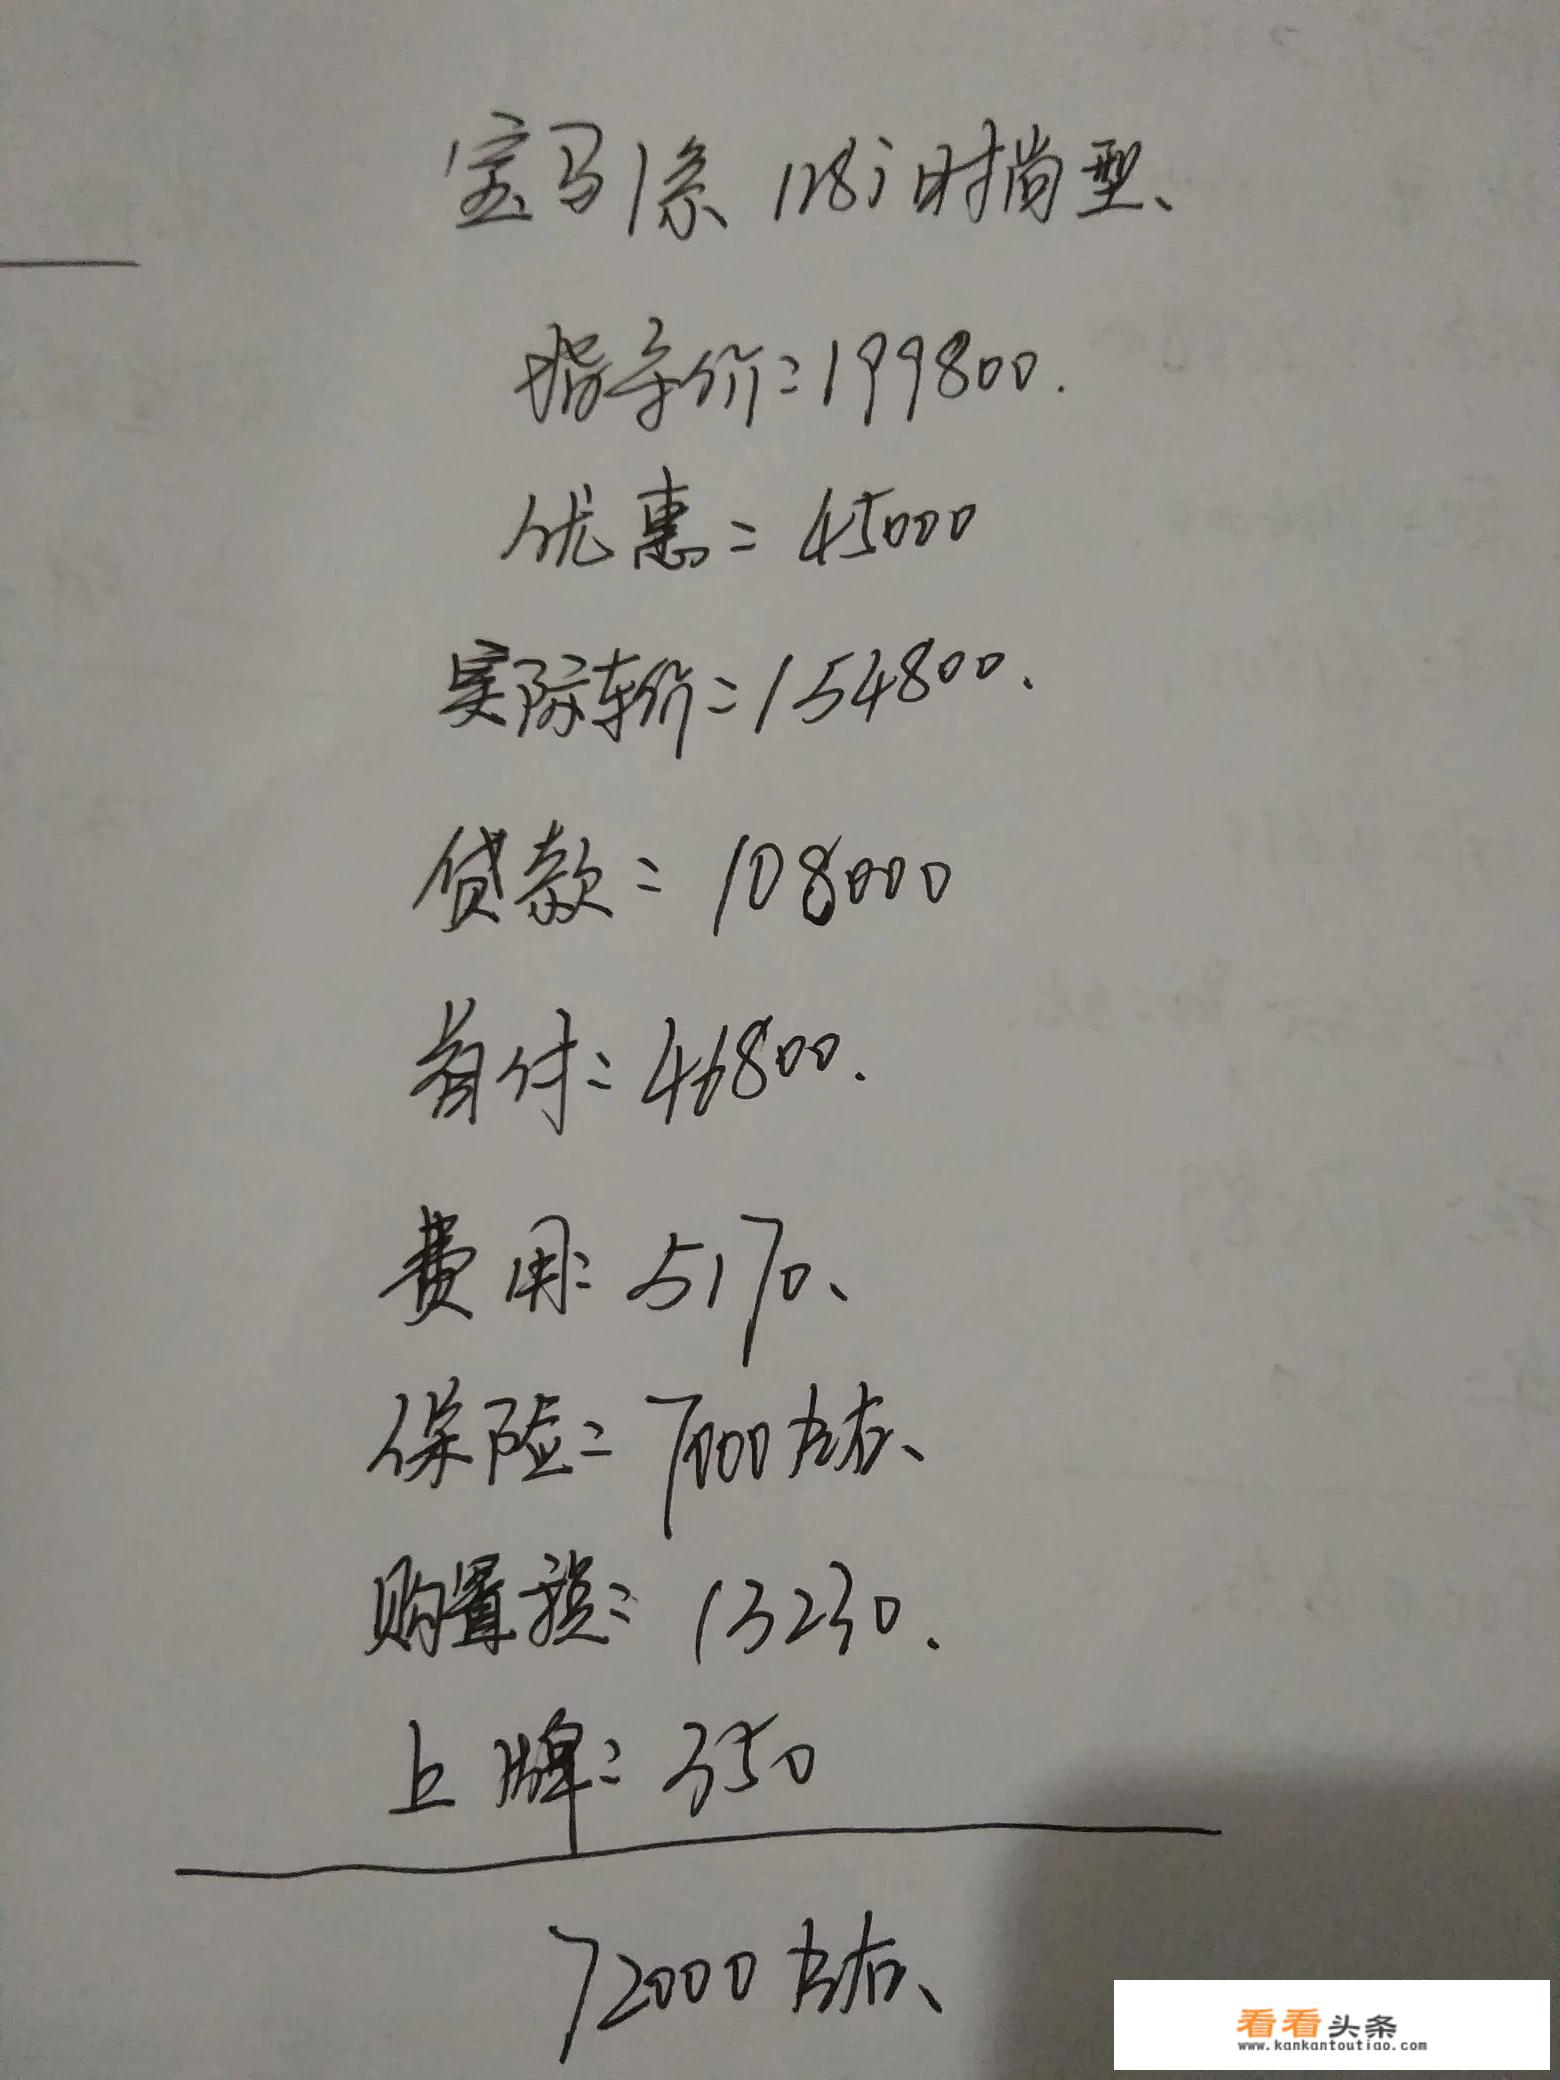 宝马1系 128i时尚型、
指导价=199800.
优惠=45000
实际车价=154800、
贷款=108000
首付=46800.
费用=5170、
保险=7000左右、
购置税=13230、
上牌=350
72000左右、
看看头条
www.kankantoutiao.com